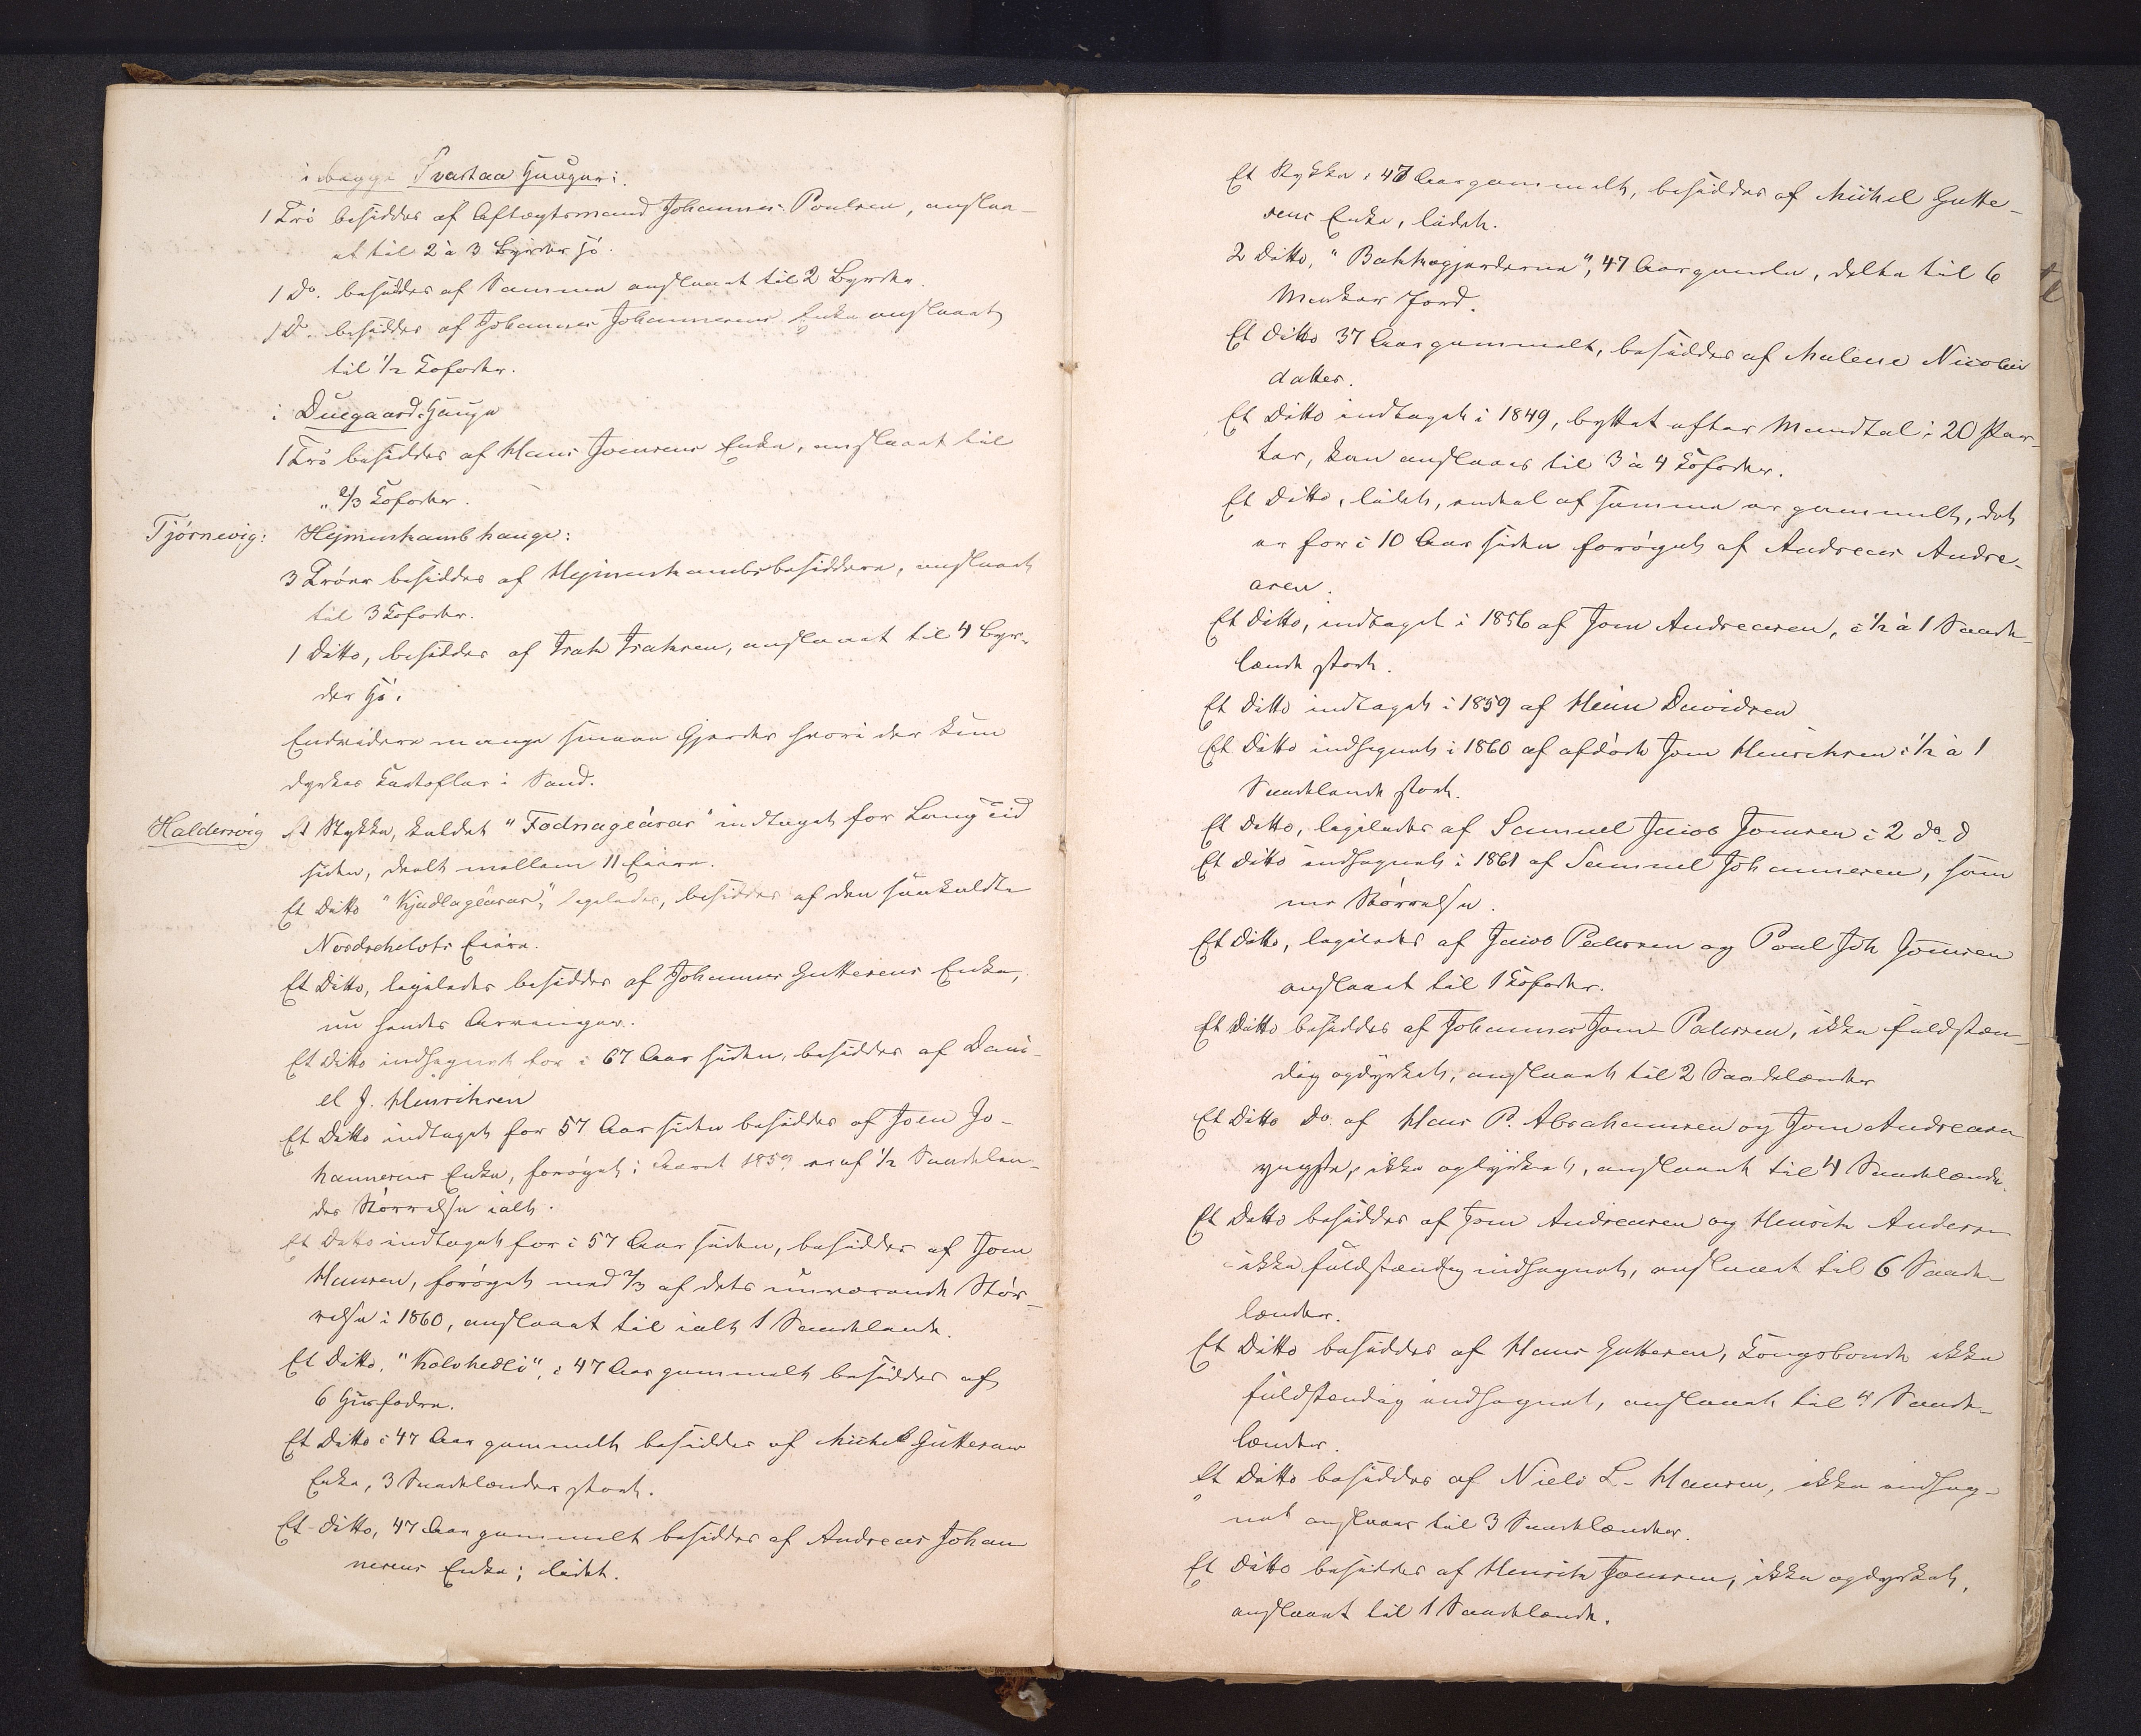 i begge Svartaa Hauger:
1 Trö besiddes af Aftægtsmand Johannes Poulsen, anslaa-
et til 2 à 3 Byrder Hö.
1 Do. besiddes af Samme anslaaet til 2 Byrder.
1 D. besiddes af Johannes Johannesens Enke anslaaet
til ½ Kofoder.
i Duegaard-Hauge
1 Trö besiddes af Hans Joensens Enke, anslaaet til
2/3 Kofoder.
Tjörnevig: Hejmeskamb hauge:
3 Tröer besiddes af Hejmeskambsbesiddere, anslaaet
til 3 Kofoder.
1 Ditto, besiddes af Isak Isaksen, anslaaet til 4 Byr-
der Hö.
Endvidere mange smaae Gjerder hvori der kun
dyrkes Kartofler i Sand.
Haldersvig Et Stykke, kaldet "Fodnageárar" indtaget for lang Tid
siden, deelt mellem 11 Eiere.
Et Ditto "Kjadlageárar", ligeledes, besiddes af den saakaldte
Nordschelots Eiere.
Et Ditto, ligeledes besiddes af Johannes Guttesens Enke,
nu hendes Arvinger.
Et Ditto indhegnet for i 67 Aar siden, besiddes af Dani-
el J. Henriksen
Et Ditto indtaget for 57 Aar siden besiddes af Joen Jo-
hannesens Enke, forøget i Aaret 1859 er af ½ Saadelan-
des Størrelse ialt.
Et Ditto indtaget for i 57 Aar siden, besiddes af Joen
Hansen, forøget med 2/3 af dets nuværende Stør-
relse i 1860, anslaaet til ialt 1 Saadelande.
Et Ditto, "Kolvhedli", i 47 Aar gammelt besiddes af
6 Huusfædre.
Et Ditto i 47 Aar gammelt besiddes af Michel Guttesens
Enke, 3 Saadelænder stort.
Et Ditto, 47 Aar gammelt besiddes af Andreas Johan
nesens Enke; lidet.
Et Stykke i 47 Aar gammelt, besiddes af Michel Gutte-
sens Enke, lidet.
2 Ditto, "Bakkagjærderne", 47 Aar gamle, delte til 6
Merker Jord.
Et Ditto 37 Aar gammelt, besiddes af Malene Nicolai
datter.
Et Ditto indtaget i 1849, byttet efter Mandtal i 20 Par-
ter, kan anslaaes til 3 à 4 Kofoder.
Et Ditto, lidet, endeel af samme er gammelt, det
er for i 10 Aar siden forøget af Andreas Andre-
asen.
Et Ditto, indtaget i 1856 af Joen Andreasen, i ½ à 1 Saade-
lænde stort.
Et Ditto indtaget i 1859 af Heine Davidsen
Et Ditto indhegnet i 1860 af afdøde Joen Henriksen i ½ à 1
Saadelande stort.
Et Ditto, ligeledes af Samuel Jacob Joensen i 2 do. d
Et Ditto indhegnet i 1861 af Samuel Johannesen, sam
me Størrelse.
Et Ditto, ligeledes af Jacob Pedersen og Poul Joh Joensen
anslaaet til 1 Kofoder.
Et Ditto besiddes af Johannes Joen Pedersen, ikke fuldstæn-
dig opdyrket, anslaaet til 2 Saadelænder
Et Ditto Do. af Hans P. Abrahamsen og Joen Andreasen
yngste, ikke opdyrket, anslaaet til 4 Saadelænde.
Et Ditto besiddes af Joen Andreasen og Henrik Andersen
ikke fuldstændig indhegnet, anslaaet til 6 Saade-
lænder.
Et Ditto besiddes af Hans Guttesen, Kongsbonde ikke
fuldstændig indhegnet, anslaaet til 4 Saade-
lænder.
Et Ditto besiddes af Niels L. Hansen, ikke indheg-
net anslaaes til 3 Saadelænder.
Et Ditto besiddes af Henrik Joensen, ikke opdyrket,
anslaaet til 1 Saadelænde.